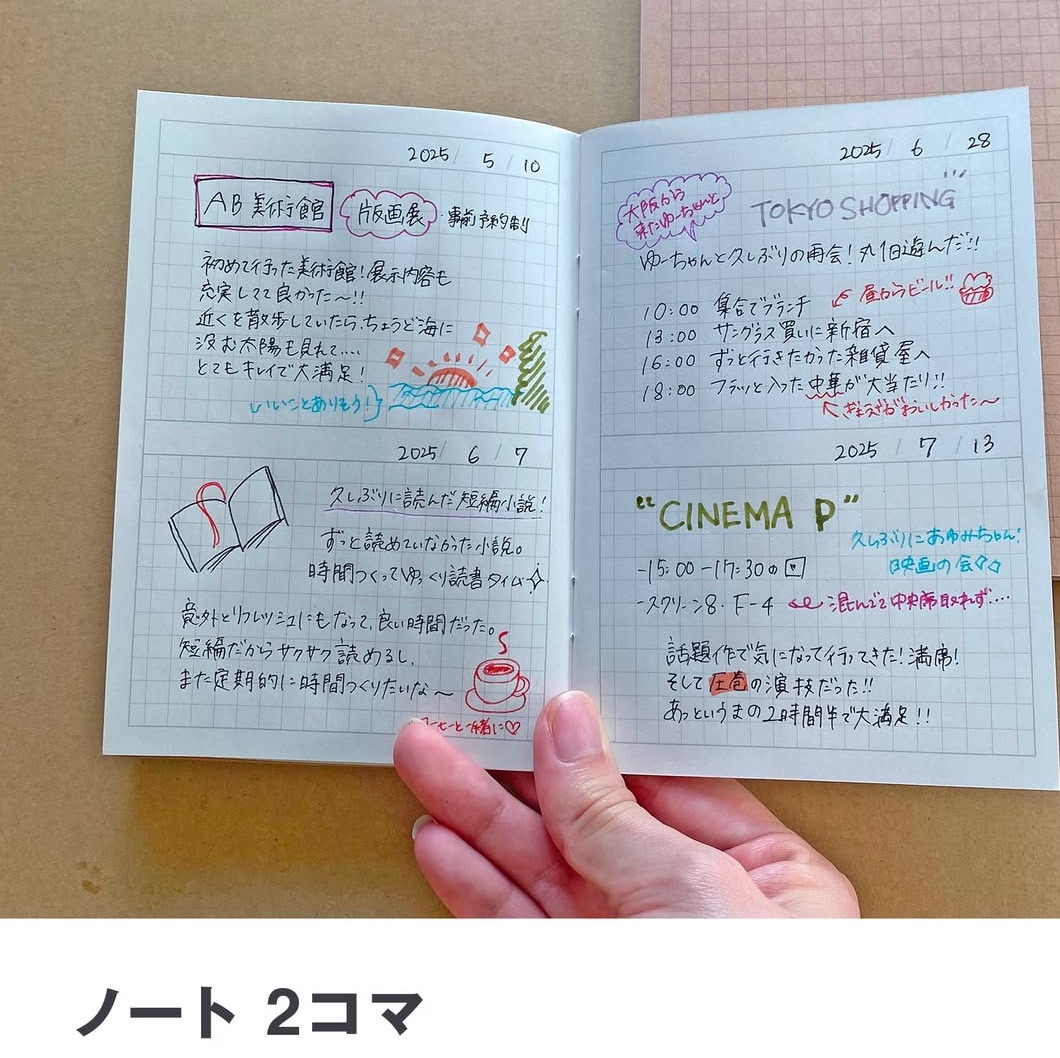 2025/ 5/ 10
AB美術館 版画展 ・事前予約制
初めて行った美術館!展示内容も
充実してて良かった〜!!
近くを散歩していたら、ちょうど海に
沈む太陽も見れて....
とてもキレイで大満足!
いいことありそう!
2025/ 6/ 7
久しぶりに読んだ短編小説!
ずっと読めていなかった小説。
時間つくってゆっくり読書タイム
意外とリフレッシュにもなって、良い時間だった。
短編だからサクサク読めるし、
また定期的に時間つくりたいな〜
ーヒーと一緒に♡
2025/ 6/ 28
大阪から
来たゆーちゃんと
TOKYO SHOPPING
ゆーちゃんと久しぶりの再会!丸1日遊んだ!!
10:00 集合でブランチ 昼からビール!!
13:00 サングラス買いに新宿へ
16:00 ずっと行きたかった雑貨屋へ
18:00 フラッと入った中華が大当たり!!
ぎょうざがおいしかった〜
2025/ 7/ 13
"CINEMA P"
久しぶりにあゆみちゃんと!
映画の会
-15:00-17:30の回
-スクリーン8. F-4 混んでて中央席取れず...
話題作で気になってて行ってきた!満席!
そして圧巻の演技だった!!
あっというまの2時間半で大満足!!
ノート 2コマ